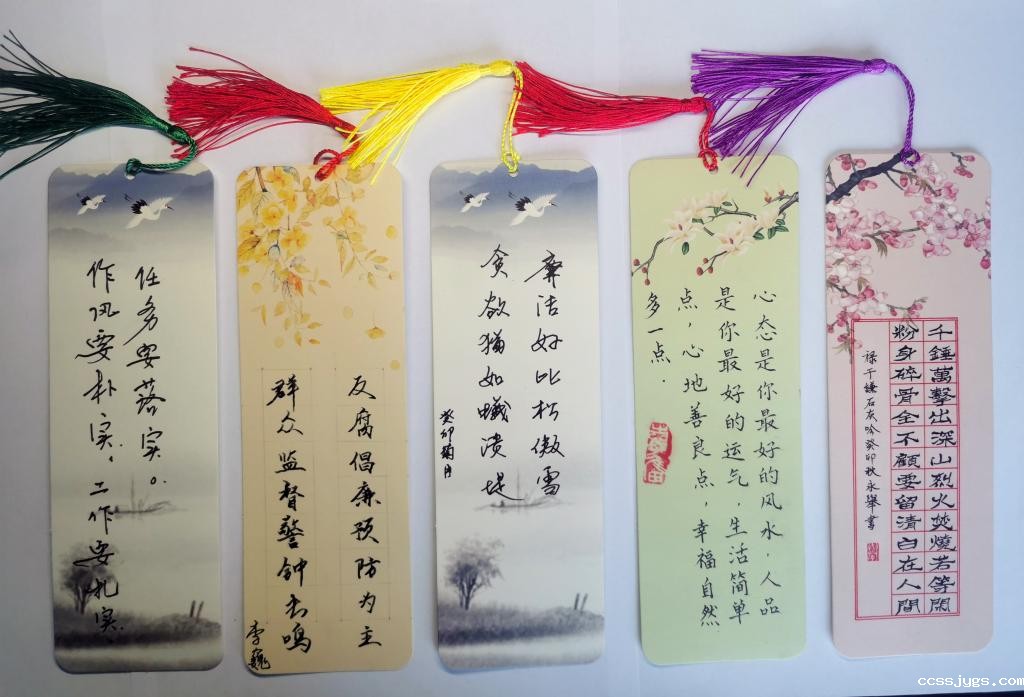 任务要落实。
作风要朴实，工作要扎实
反腐倡廉预防为主
群众监督警钟长鸣
李巍
廉洁好比松傲雪
贪欲猶如蟻溃堤
癸卯菊月
心态是你最好的风水，人品
是你最好的运气，生活简单
点，心地善良点，幸福自然
多一点.
千錘萬擊出深山烈火焚燒若等閑
粉身碎骨全不顧要留清白在人間
禄于謙石灰吟癸卯秋永舉書
ccssjygs.com